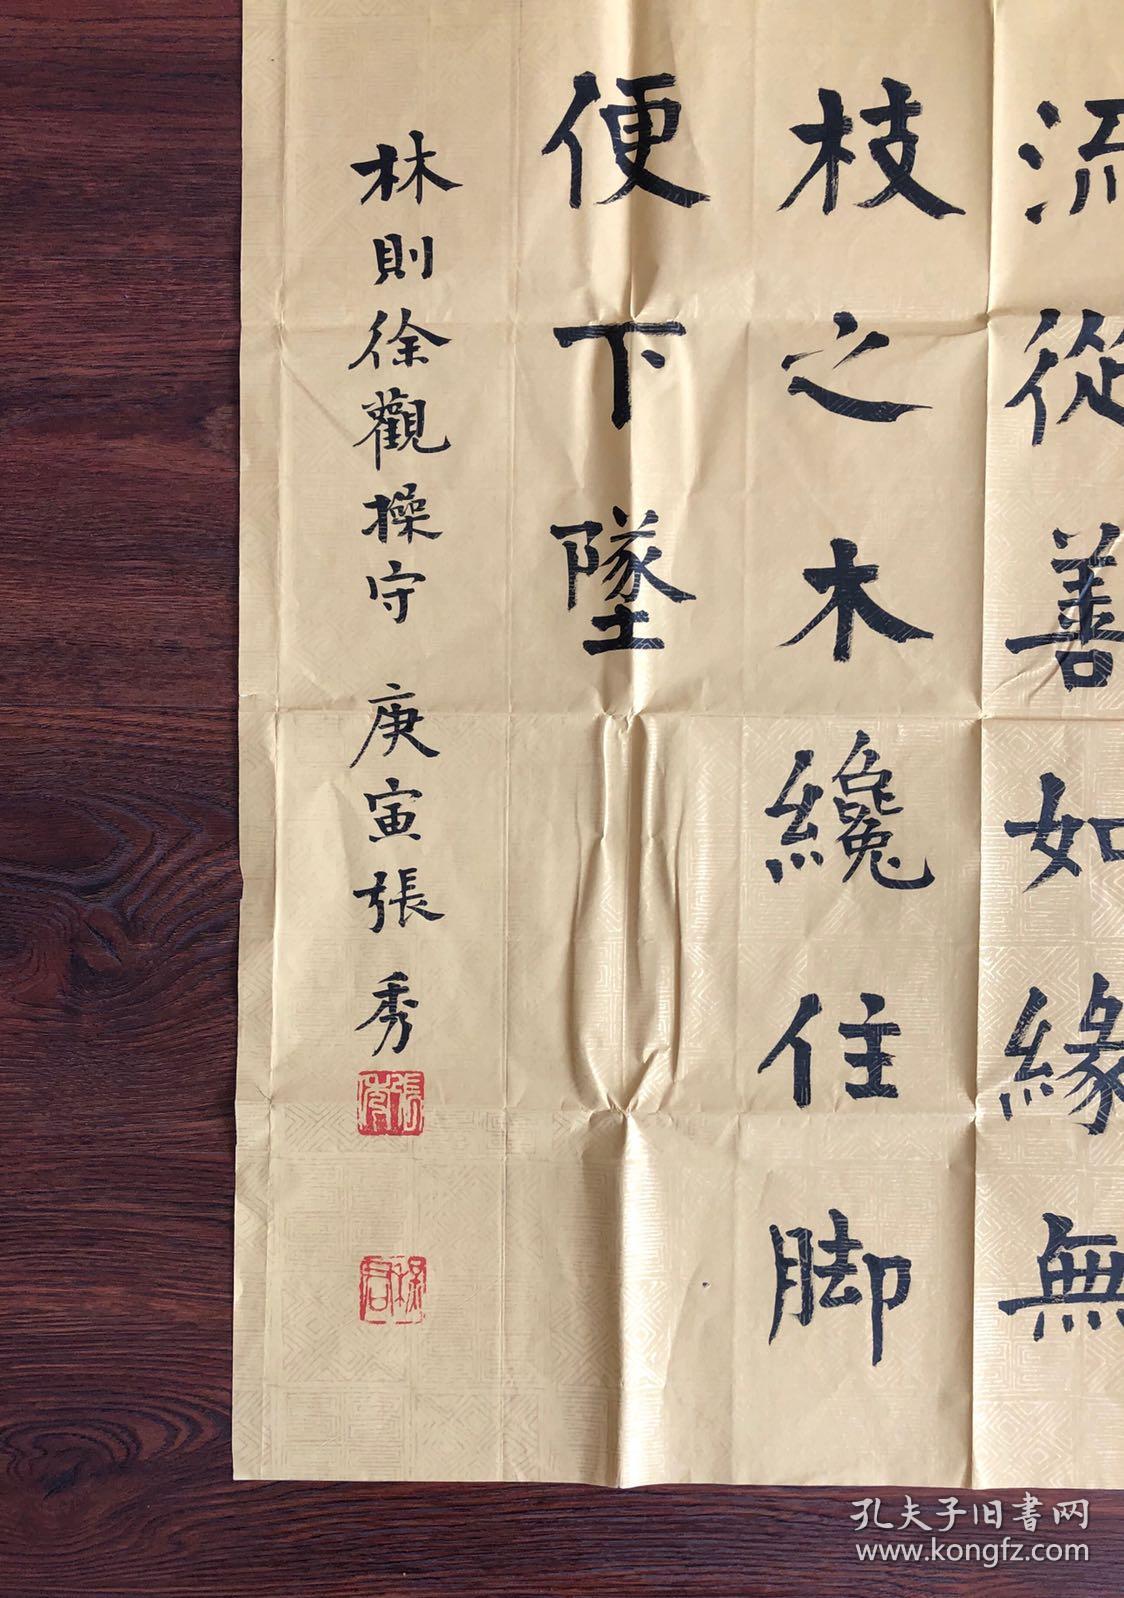 流從善如緣無
枝之木纔住脚
便下墜
林則徐觀操守 庚寅張秀
孔夫子旧書网
www.kongfz.com